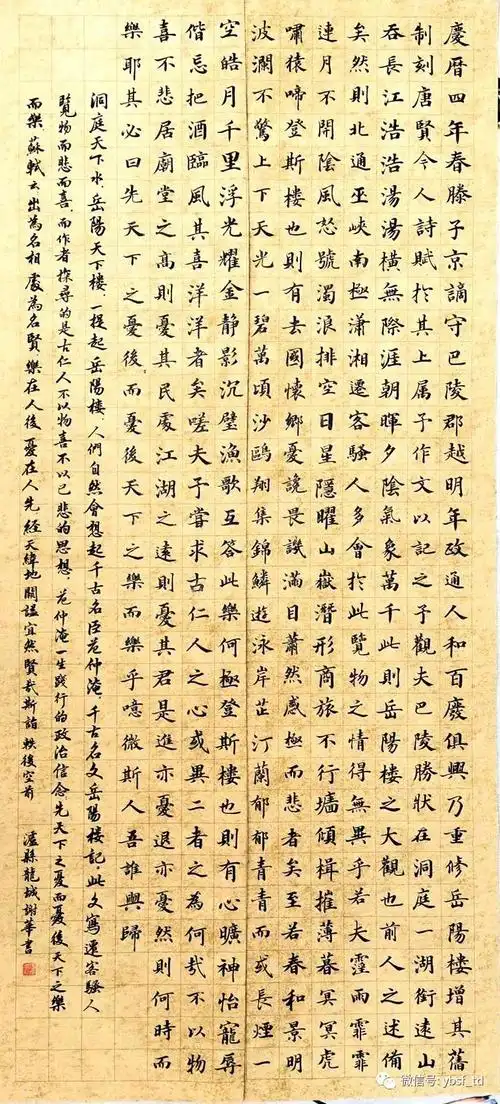 慶曆四年春滕子京謫守巴陵郡越明年政通人和百廢俱興乃重修岳陽樓增其舊
制刻唐賢今人詩賦於其上属予作文以記之予觀夫巴陵勝狀在洞庭一湖銜遠山
吞長江浩浩湯湯橫無際涯朝暉夕陰氣象萬千此則岳陽樓之大觀也前人之述備
矣然則北通巫峽南極瀟湘遷客騷人多會於此覽物之情得無異乎若夫霪雨霏霏
連月不開陰風怒號濁浪排空日星隱曜山嶽潛形商旅不行墻傾楫摧薄暮冥冥虎
嘯猿啼登斯樓也則有去國懷鄉憂讒畏譏滿目蕭然感極而悲者矣至若春和景明
波瀾不驚上下天光一碧萬頃沙鷗翔集錦鱗遊泳岸芷汀蘭郁郁青青而或長煙一
空皓月千里浮光耀金静影沉璧漁歌互答此樂何極登斯樓也則有心曠神怡寵辱
偕忘把酒臨風其喜洋洋者矣嗟夫予嘗求古仁人之心或異二者之為何哉不以物
喜不悲居廟堂之高則憂其民處江湖之遠則憂其君是進亦憂退亦憂然則何時而
樂耶其必曰先天下之憂後而憂後天下之樂而樂乎噫微斯人吾誰與歸
洞庭天下水，岳陽天下樓，一提起岳陽樓，人們自然會想起千古名臣范仲淹，千古名文岳陽樓記，此文寫遷客騷人
覽物而悲而喜，而作者探尋的是古仁人不以物喜不以己悲的思想，范仲淹一生践行的政治信念先天下之憂而憂後天下之樂
而樂，蘇軾云出為名相處為名賢樂在人後憂在人先經天緯地闕謚宜然賢哉斯詣軼後空前 瀘縣龍城謝華書
微信号: ybsf_td